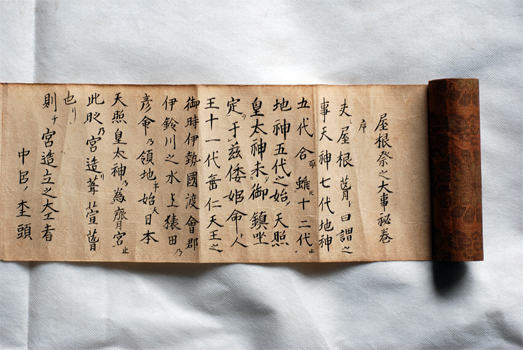 屋根祭之大事秘巻
序
夫屋根葺曰謂之
事天神七代地神
五代合雖十二代
地神五代之始天照
皇太神未御鎮坐
定于茲倭姫命人
王十一代垂仁天王之
御時伊勢國渡會郡
伊鈴川之水上猿田乃
彦命乃領地始日本
天照皇太神乃為齋宮
此时乃宮造葺萱葺
也
則宮造立之大工者
中臣杢頭